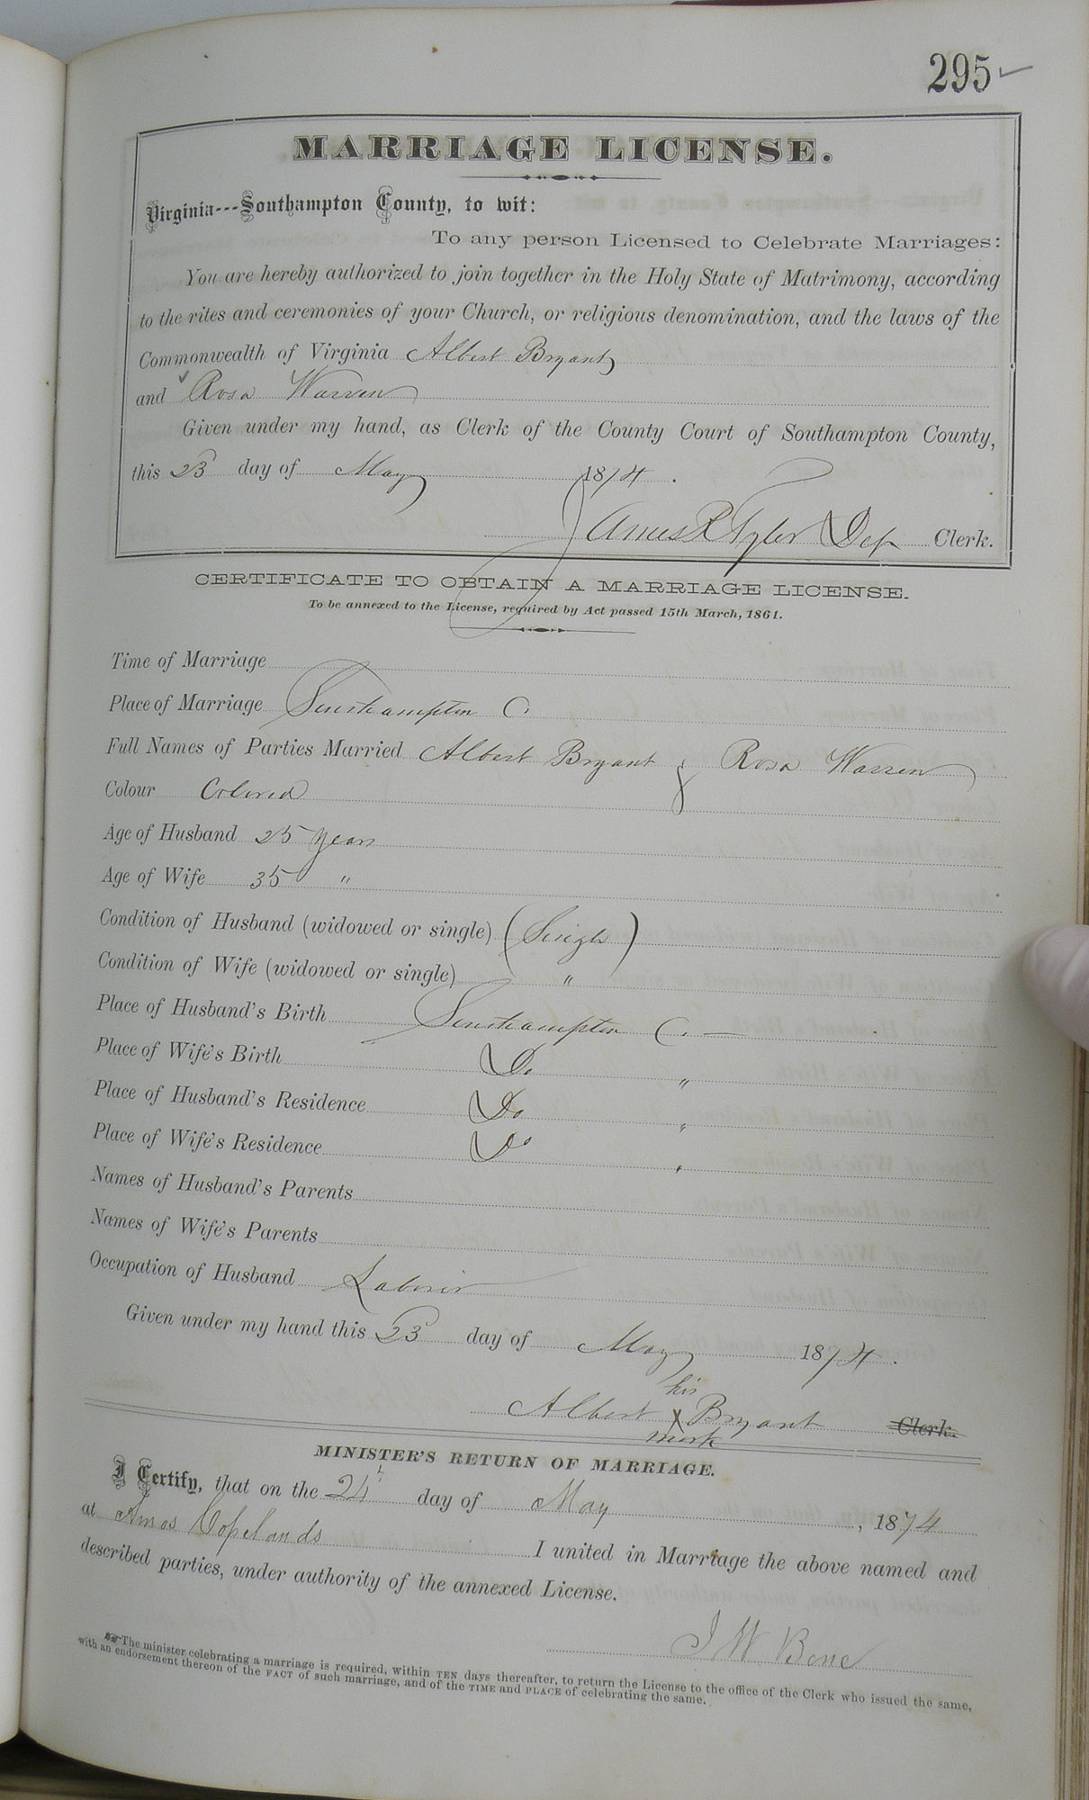 295 ✓
MARRIAGE LICENSE.
Virginia---Southampton County, to wit:
To any person Licensed to Celebrate Marriages:
You are hereby authorized to join together in the Holy State of Matrimony, according
to the rites and ceremonies of your Church, or religious denomination, and the laws of the
Commonwealth of Virginia Albert Bryant
and Rosa Warren
Given under my hand, as Clerk of the County Court of Southampton County,
this 23 day of May 1874.
James R Tyler Dep Clerk.
CERTIFICATE TO OBTAIN A MARRIAGE LICENSE.
To be annexed to the License, required by Act passed 15th March, 1861.
Time of Marriage
Place of Marriage Southampton C.
Full Names of Parties Married Albert Bryant & Rosa Warren
Colour Colored
Age of Husband 25 years
Age of Wife 35 "
Condition of Husband (widowed or single) (Single)
Condition of Wife (widowed or single) "
Place of Husband's Birth Southampton C. —
Place of Wife's Birth Do "
Place of Husband's Residence Do "
Place of Wife's Residence Do "
Names of Husband's Parents
Names of Wife's Parents
Occupation of Husband Laborer
Given under my hand this 23 day of May 1874.
his
Albert X Bryant Clerk.
mark
MINISTER'S RETURN OF MARRIAGE.
I Certify, that on the 24 day of May, 1874
at Amos Copelands I united in Marriage the above named and
described parties, under authority of the annexed License.
J W Bone
The minister celebrating a marriage is required, within TEN days thereafter, to return the License to the office of the Clerk who issued the same,
with an endorsement thereon of the FACT of such marriage, and of the TIME and PLACE of celebrating the same.